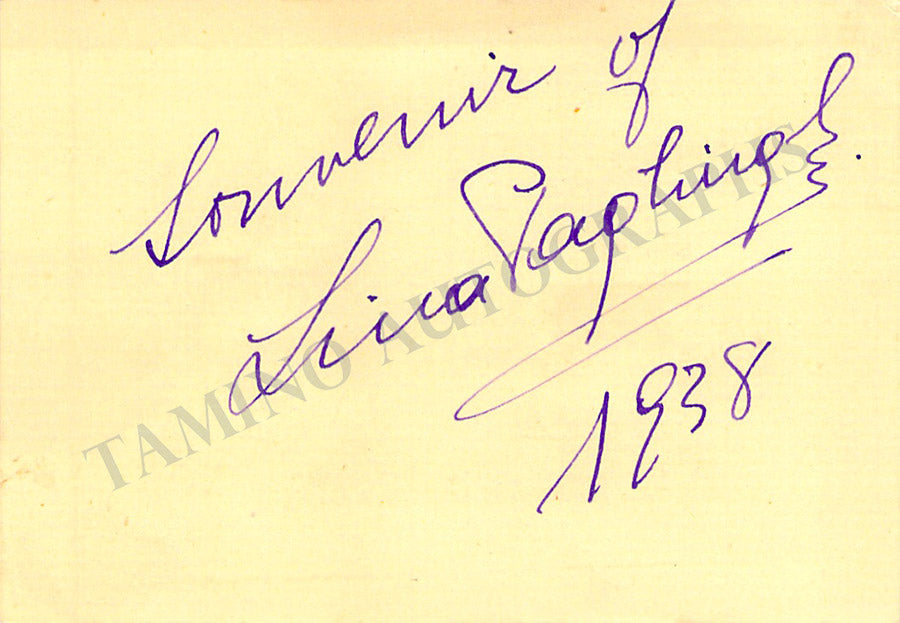 Souvenir of
Lina Pagliughi.
1938
TAMINO AUTOGRAPHS